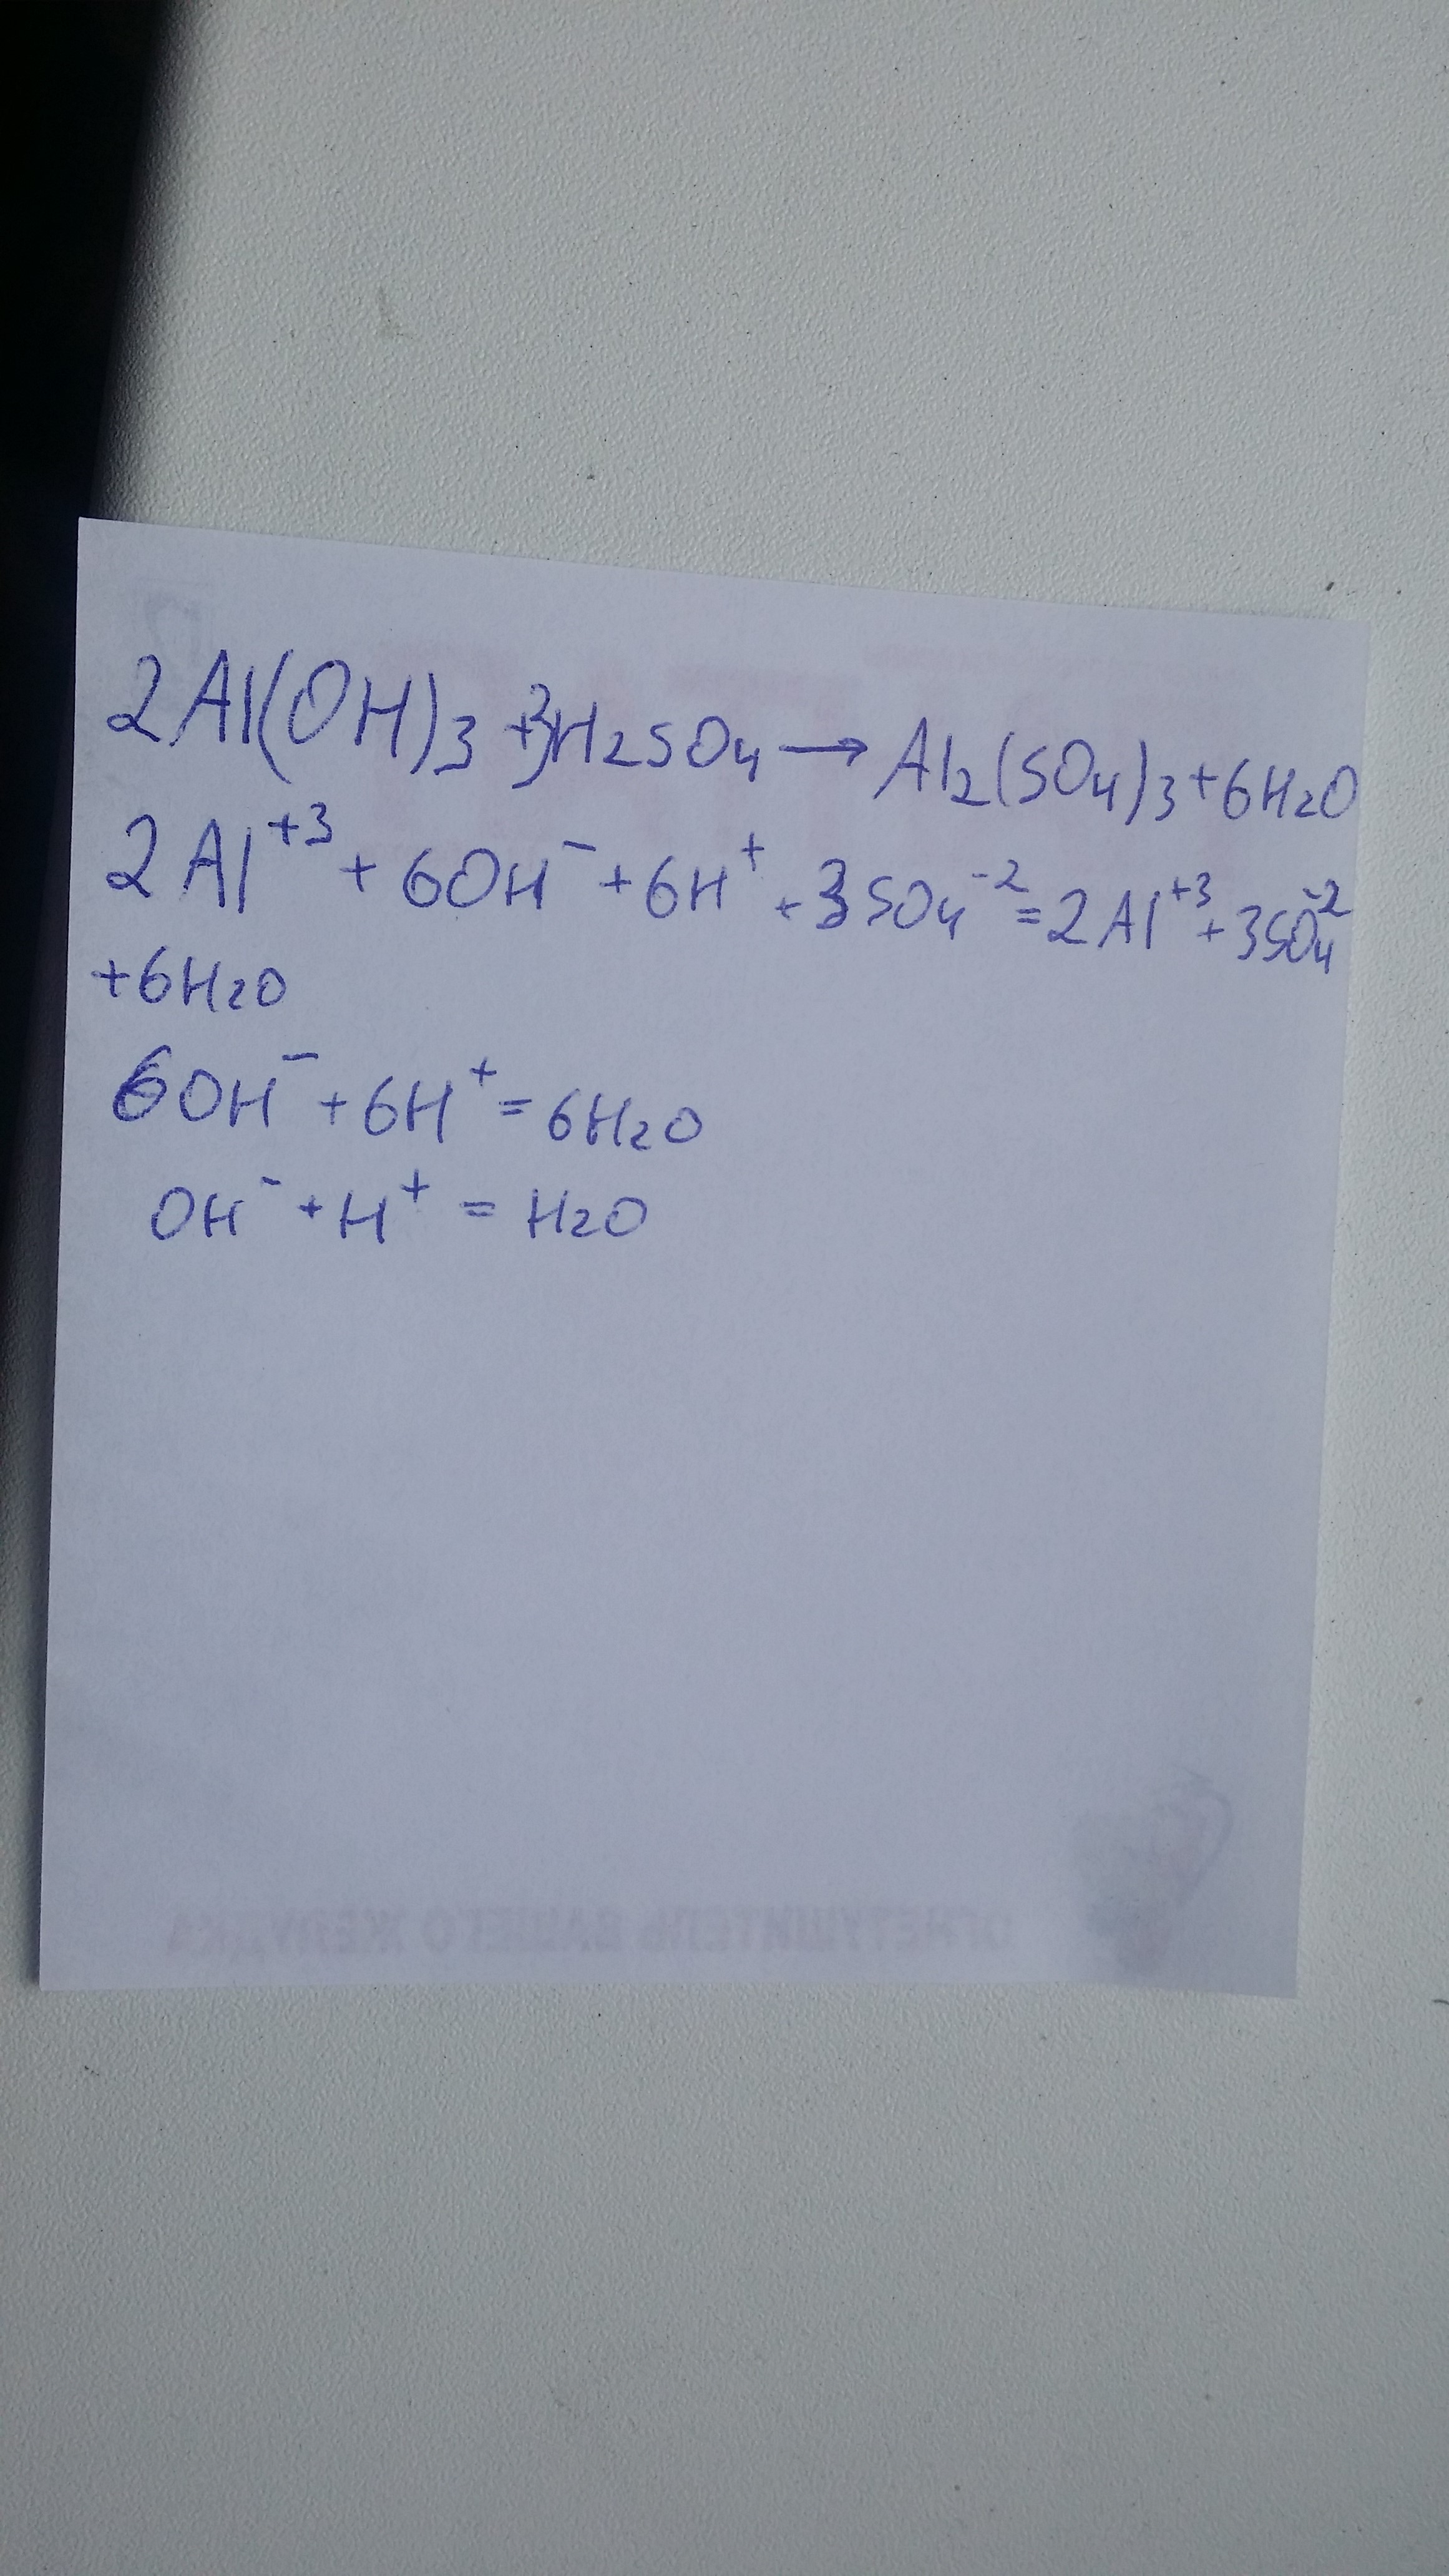 2Al(OH)₃ + 3H₂SO₄ → Al₂(SO₄)₃ + 6H₂O
2Al⁺³ + 6OH⁻ + 6H⁺ + 3SO₄⁻² = 2Al⁺³ + 3SO₄⁻²
+ 6H₂O
6OH⁻ + 6H⁺ = 6H₂O
OH⁻ + H⁺ = H₂O
ОГНЕТУШИТЕЛЬ ВАШЕГО ЖЕЛУДКА